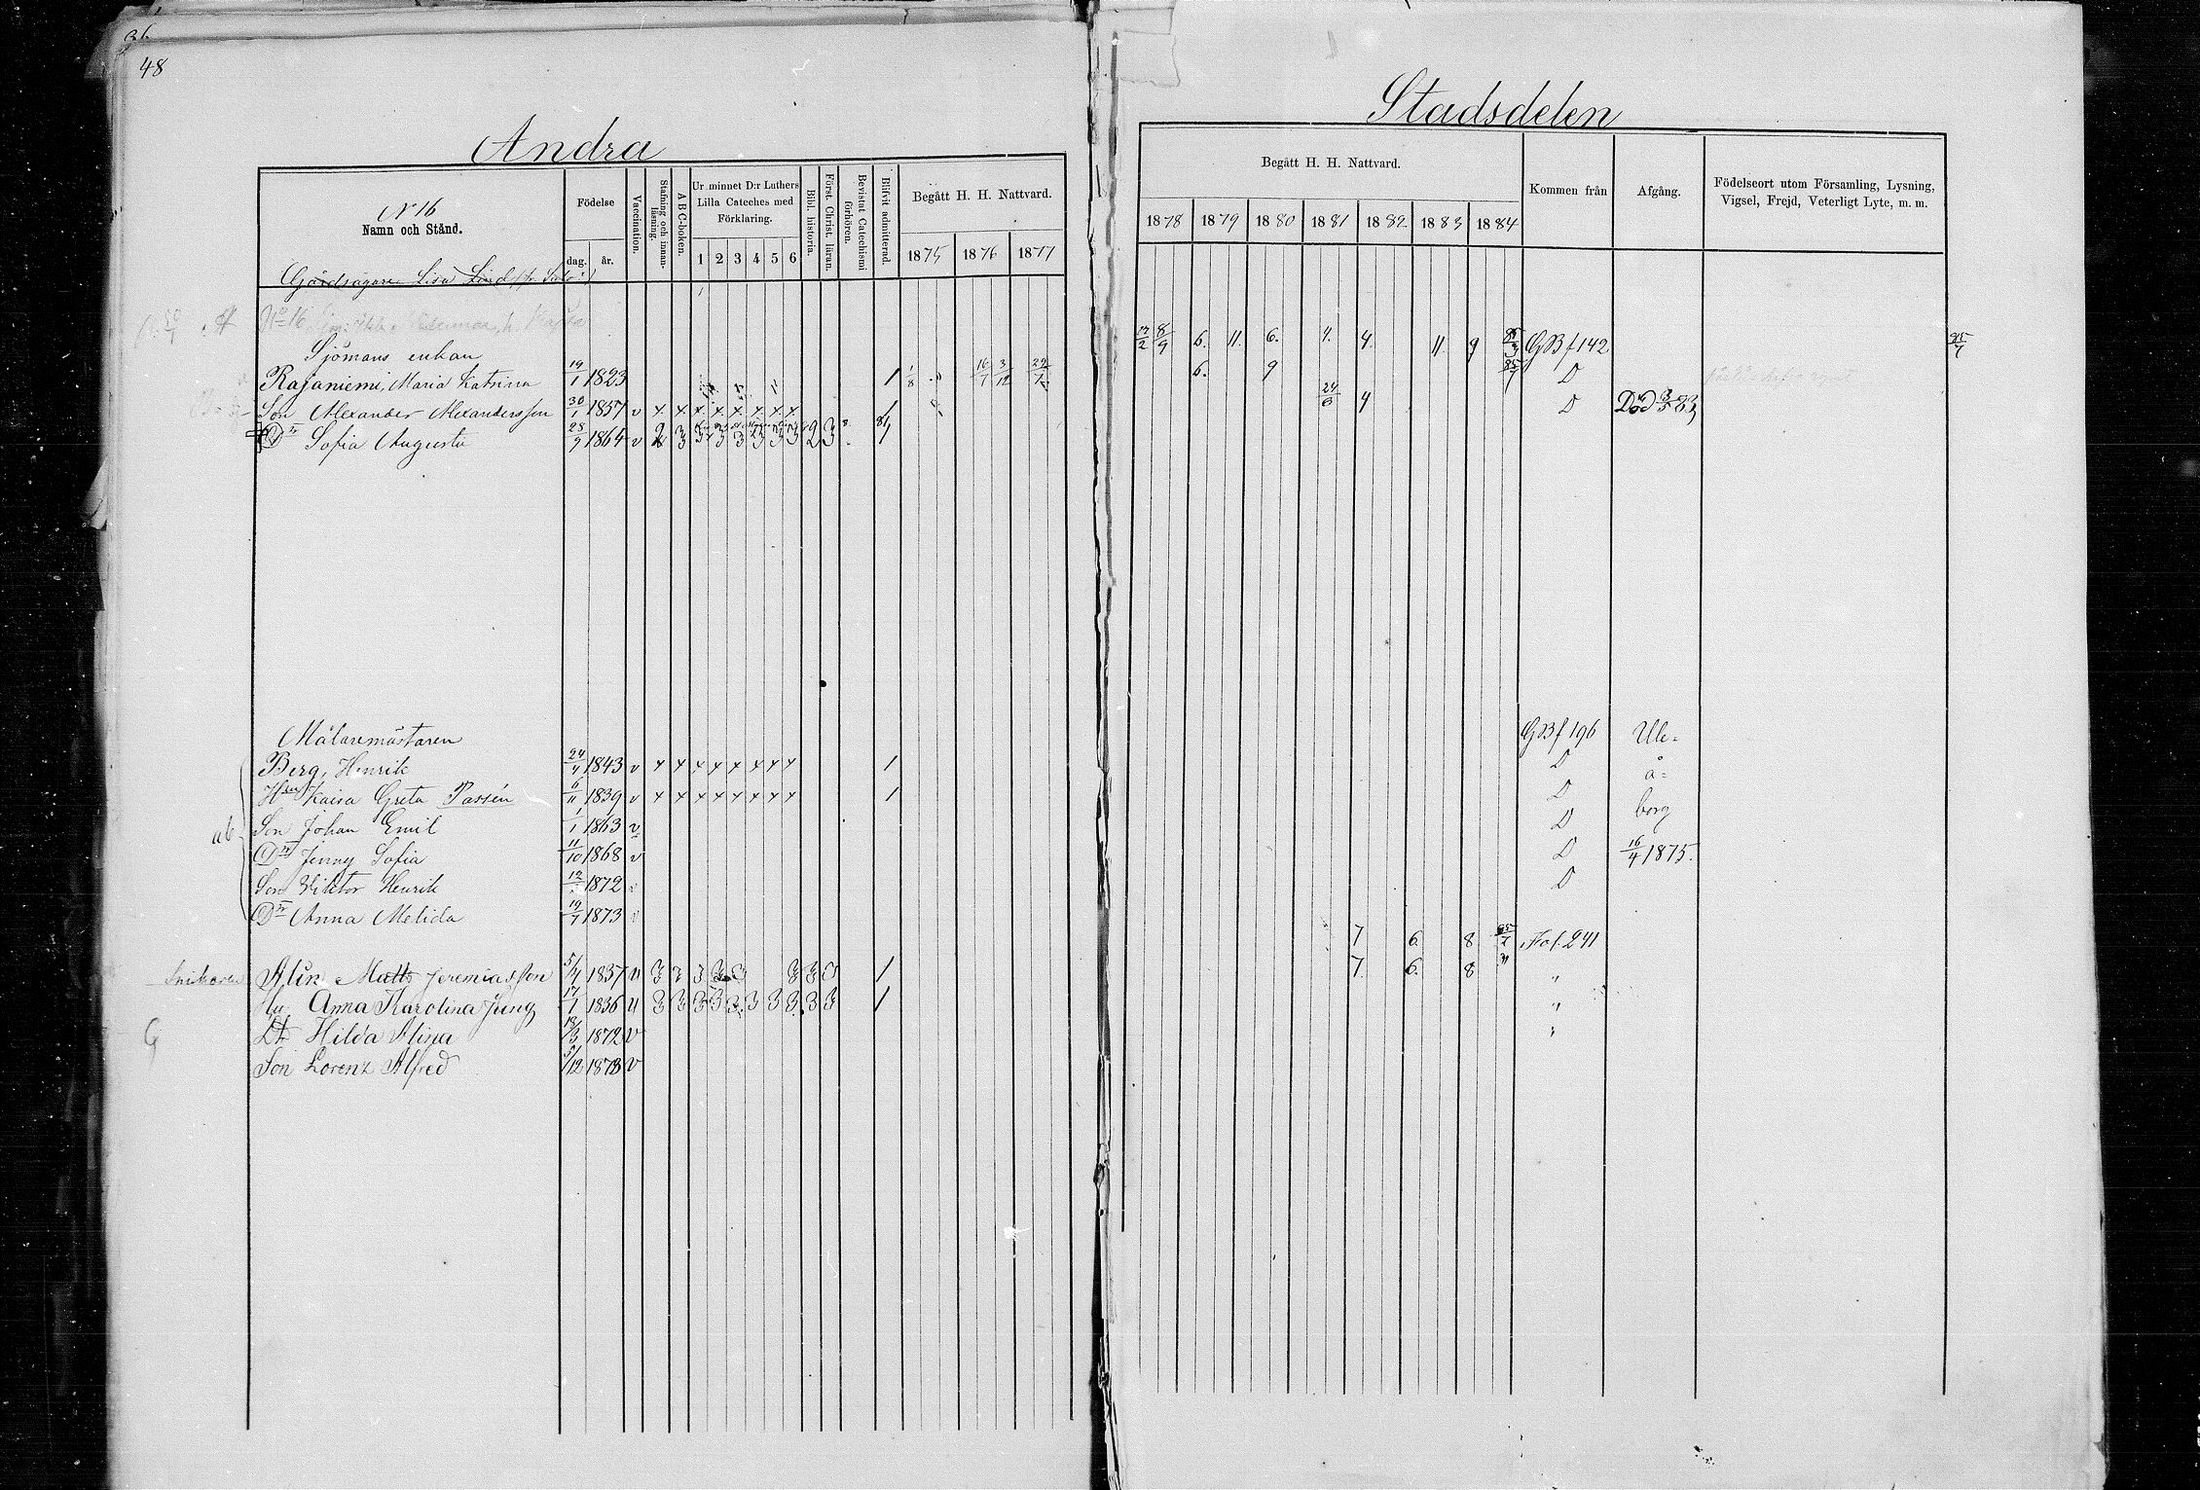 48
Andra
Stadsdelen
N 16
Namn och Stånd.
Födelse
dag.
år.
Vaccination.
Stafning och innan-
läsning.
A B C-boken.
Ur minnet D:r Luthers
Lilla Cateches med
Förklaring.
1 2 3 4 5 6
Bibl. historia.
Först. Christ. läran.
Bevistat Catechismi
förhören.
Blifvit admitterad.
Begått H. H. Nattvard.
1875 1876 1877
Begått H. H. Nattvard.
1878 1879 1880 1881 1882 1883 1884
Kommen från
Afgång.
Födelseort utom Församling, Lysning,
Vigsel, Frejd, Veterligt Lyte, m. m.
Gårdsägaren Lisa Lind
No 16
Sjömans enkan
Rajaniemi, Maria Katrina 19/1 1823 1 1/8 16/7 3/12 22/7 17/2 8/9 6. 11. 6. 4. 4. 11. 9 GBf 142
Son Alexander Alexandersson 30/1 1857 v x x x x x x x x 1 6. 9 D
Dr Sofia Augusta 28/9 1864 v 2 3 3 3 3 3 3 3 2 3 81 24/6 4 D Död 3/5 83
Målaremästaren
Berg, Henrik 24/4 1843 v x x x x x x x x 1 GBf 196 Ule-
Hru Kaisa Greta Passén 6/11 1839 v x x x x x x x x 1 D å-
Son Johan Emil 1/1 1863 v D borg
Dr Jenny Sofia 11/10 1868 v D
Son Viktor Henrik 12 1872 D 16/4 1875.
Dr Anna Melida 19/7 1873 D
Snickaren Alin Matts Jeremiasson 5/4 1837 v 1 7 6 8 Fol. 241
Hu Anna Karolina Jung 17/1 1836 v 3 3 3 3 3 3 3 3 3 3 1 7. 6. 8 "
Dt Hilda Alina 18/3 1872 v "
Son Lorenz Alfred 5/12 1873 v "